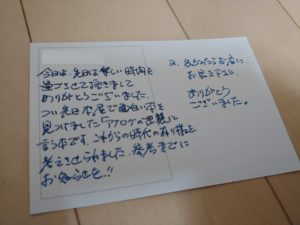 今日は、先日は楽しい時間を
過ごさせて頂きまして
ありがとうございました。
つい先日本屋で面白い本を
見つけました「アナログの逆襲」と
言う本です。これからの時代の有り様を
考えさせられました。参考までに
お知らせを!!
又、
お店に
お越し下さい。
ありがとう
ございました。